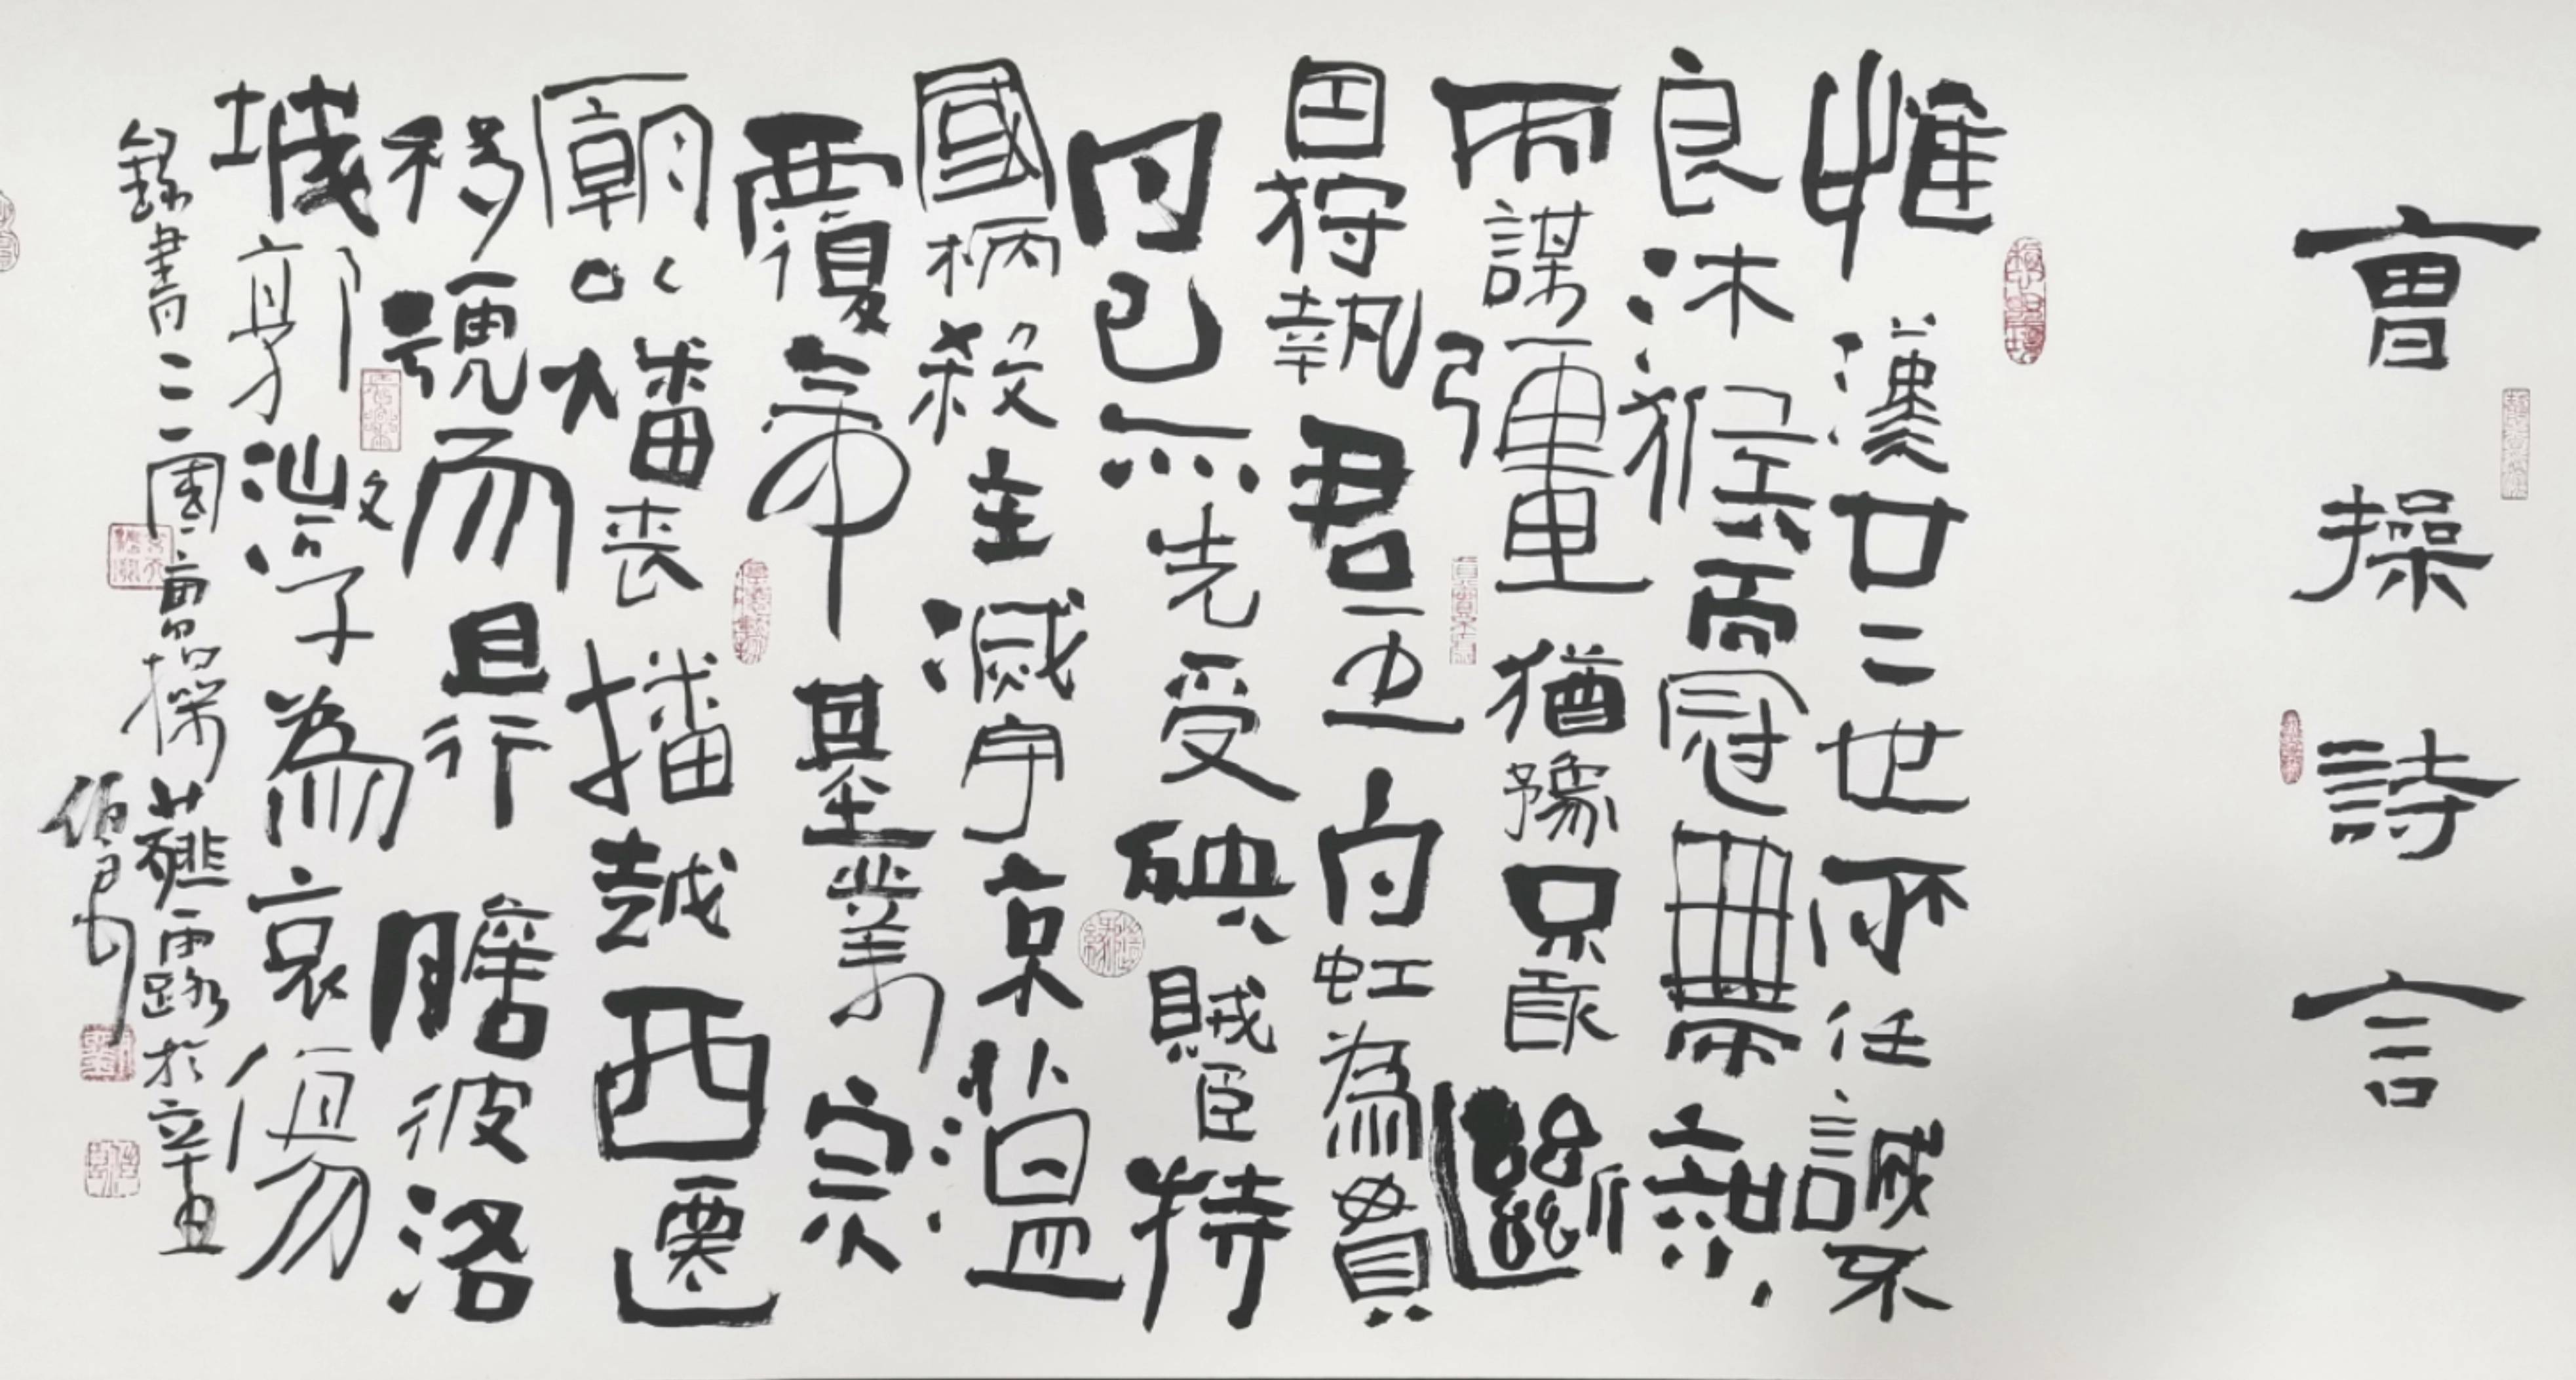 曹操詩言
惟漢廿二世所任誠不
良沐猴而冠帶
而謀彊猶豫不敢斷
因狩執君王白虹為貫
日己亦先受殃賊臣持
國柄殺主滅宇京蕩
覆帝基業宗
廟以燔喪播越西遷
移號而且行瞻彼洛
城郭微子為哀傷
錄書三國曹操薤露於辛丑